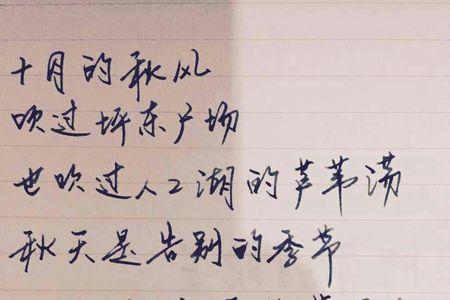 十月的秋风
吹过坪东广场
也吹过人工湖的芦苇荡
秋天是告别的季节